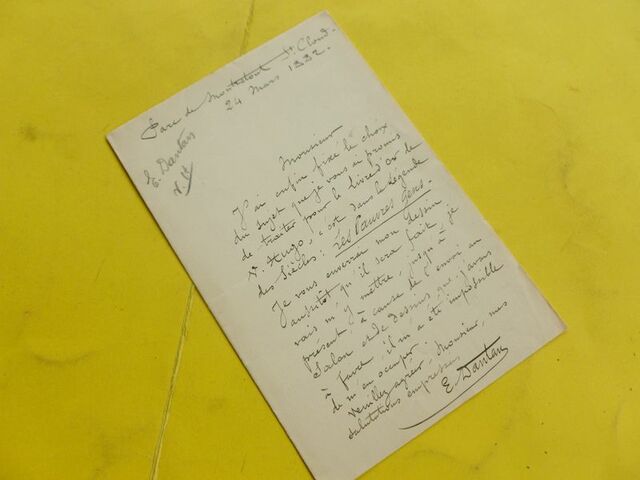 Parc de Montretout St Cloud.
24 Mars 1882.
E. Dantan
V. H
Monsieur
J'ai enfin fixé le choix
du sujet que je vous ai promis
de traiter pour le Livre d'or de
V. Hugo, c'est dans la Légende
des Siècles: Les Pauvres Gens.
Je vous enverrai mon dessin
aussitôt qu'il sera fait, je
vais m'y mettre, jusqu'à
présent, à cause de l'envoi au
Salon et de dessins que j'avais
à faire, il m'a été impossible
de m'en occuper.
Veuillez agréer, Monsieur, mes
salutations empressées
E. Dantan